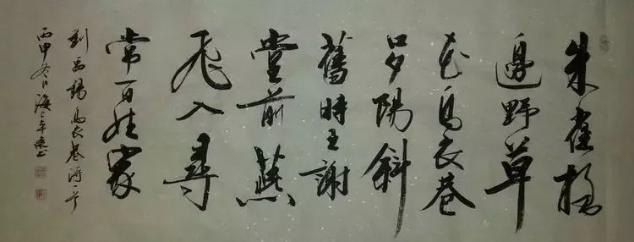 朱雀橋
邊野草
花烏衣巷
口夕陽斜
舊時王謝
堂前燕
飛入尋
常百姓家
劉禹錫烏衣巷詩一首
丙申冬日